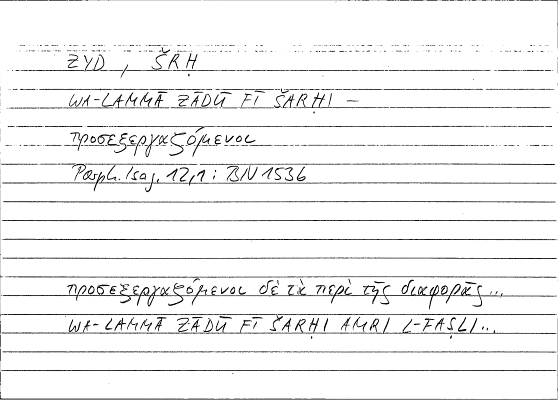 ZYD, ŠRḤ
WA-LAMMĀ ZĀDŪ FĪ ŠARḤI –
προσεξεργαζόμενοι
Porph. Isag. 12,1; BN 1536
προσεξεργαζόμενοι δὲ τὰ περὶ τῆς διαφορᾶς...
WA-LAMMĀ ZĀDŪ FĪ ŠARḤI AMRI L-FAṢLI...